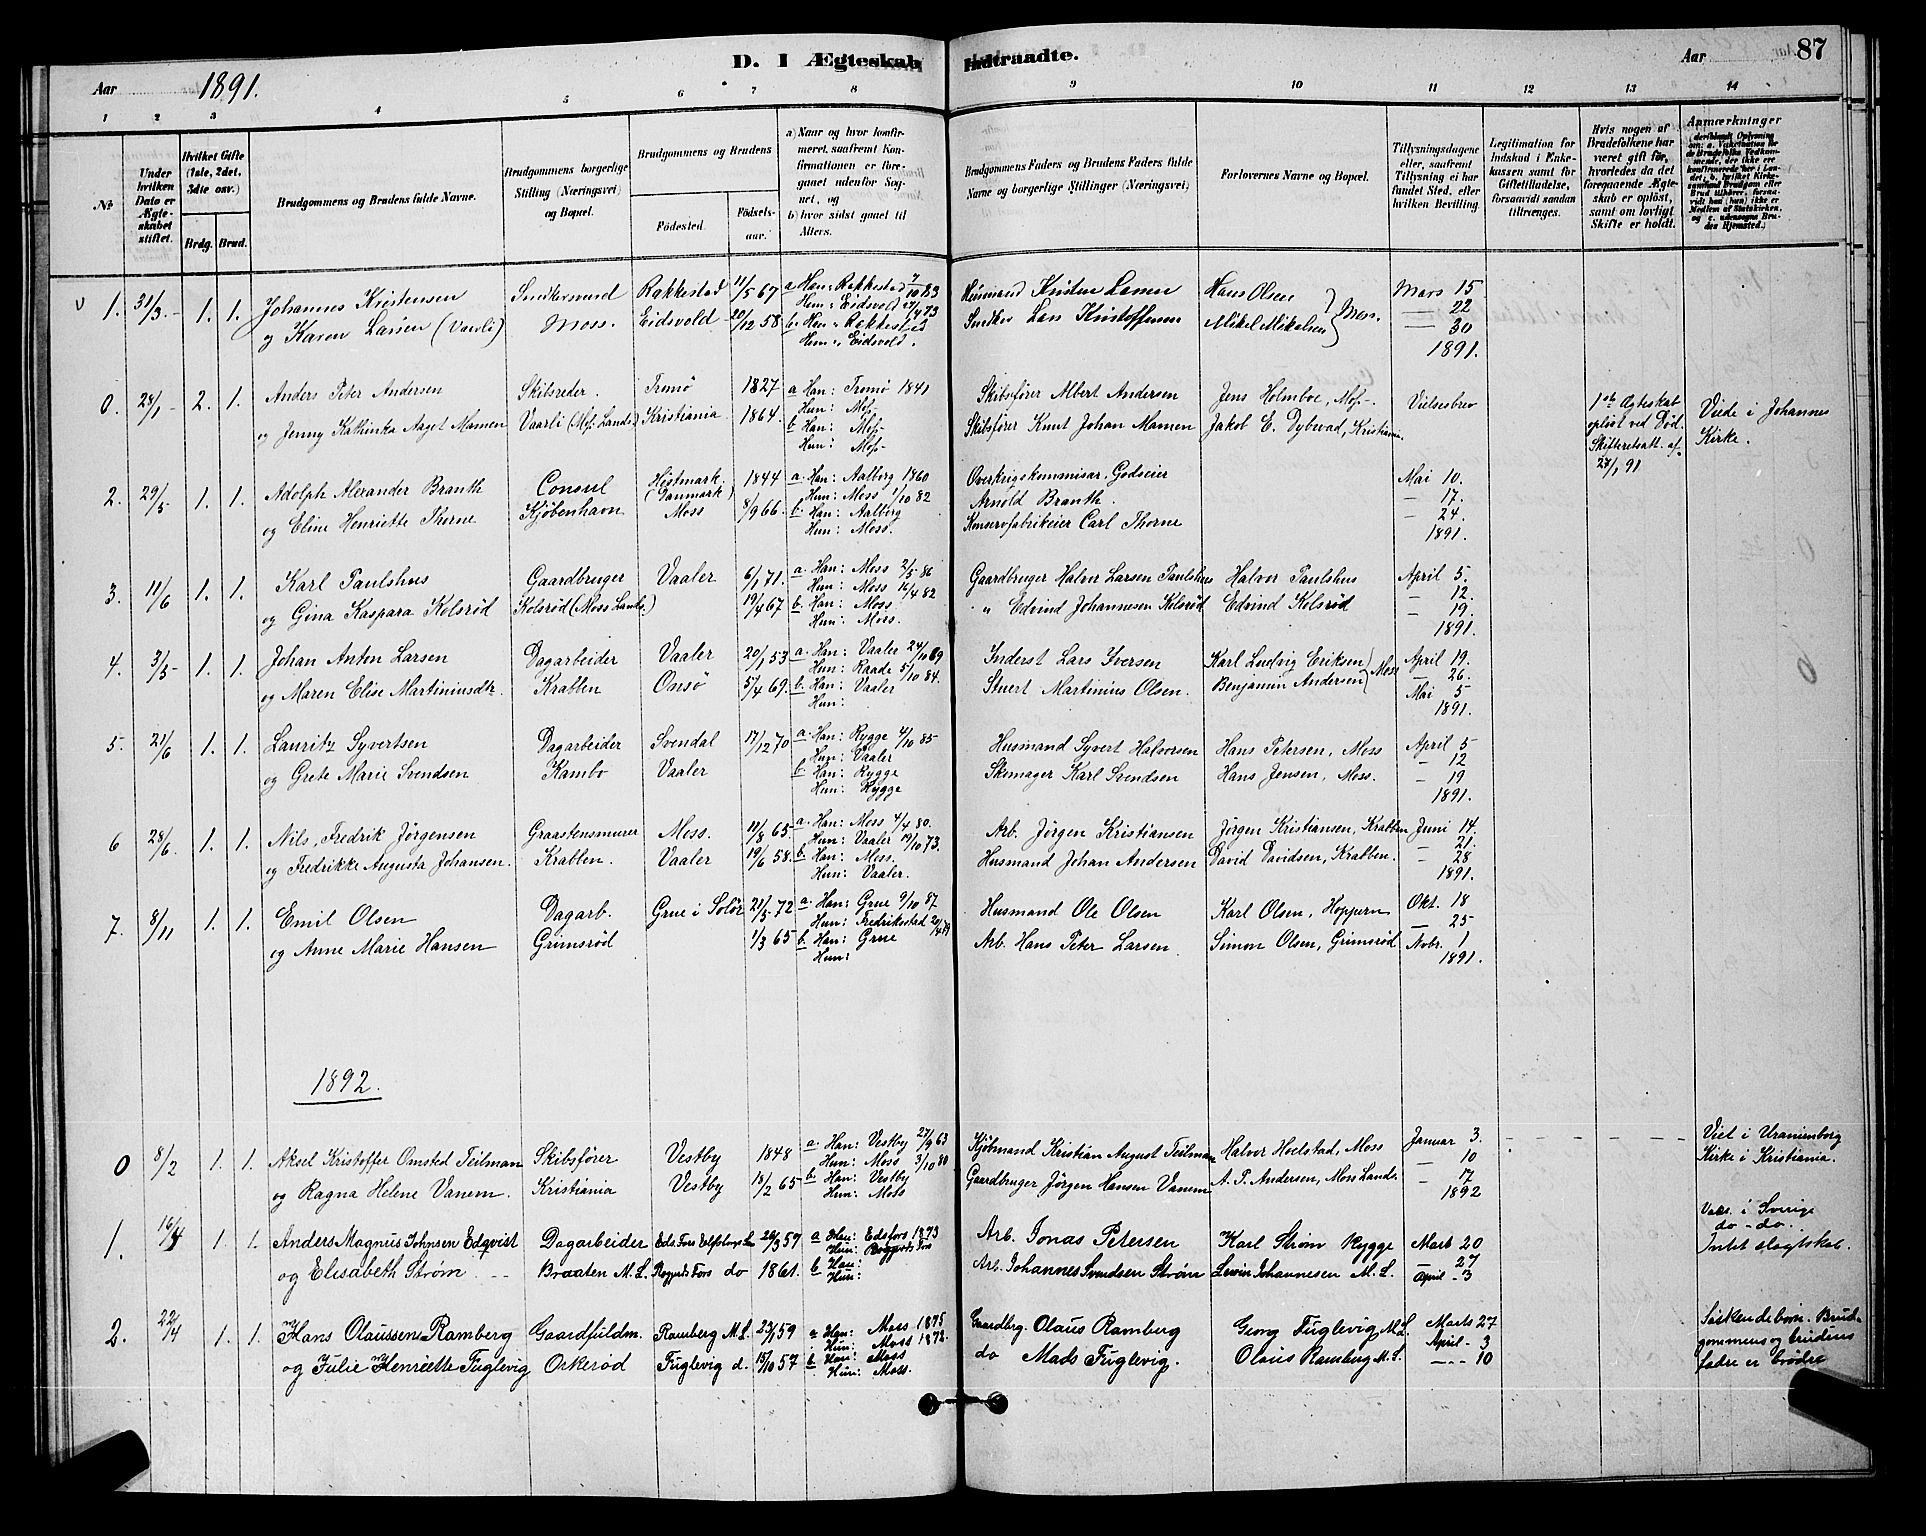 D. I Ægteskab Indtraadte.
Aar 1891. Aar 87
1 2 3 4 5 6 7 8 9 10 11 12 13 14
No
Under hvilken Dato er Ægteskabet stiftet.
Hvilket Gifte (1ste, 2det, 3die osv.)
Brdg. Brud.
Brudgommens og Brudens fulde Navne.
Brudgommens borgerlige Stilling (Næringsvei) og Bopæl.
Brudgommens og Brudens
Födested. Födselsaar.
a) Naar og hvor konfirmeret, saafremt Konfirmationen er foregaaet udenfor Sognet, og
b) hvor sidst gaaet til Alters.
Brudgommens Faders og Brudens Faders fulde Navne og borgerlige Stillinger (Næringsvei)
Forlovernes Navne og Bopæl.
Tillysningsdagene eller, saafremt Tillysning ei har fundet Sted, efter hvilken Bevilling.
Legitimation for Indskud i Enkekassen samt for Giftetilladelse, forsaavidt saadan tiltrænges.
Hvis nogen af Brudefolkene har været gift før, hvorledes da det foregaaende Ægteskab er opløst, samt om lovligt Skifte er holdt.
Anmærkninger
1. 31/3 1. 1. Johannes Kristensen Snedkersvend Rakkestad 11/5 67 a Han: Rakkestad 7/10 83 Kristen Larsen Hans Olsen Mars 15
Hun: Eidsvold 27/4 73 22
og Karen Larsen (Vaarli) Moss. Eidsvold 20/12 58 b Han: Rakkestad Snedker Lars Kristoffersen Mikel Mikalsen Moss. 30
Hun: Eidsvold. 1891.
0. 28/1 2. 1. Anders Peter Andersen Skibsreder. Tromö 1827 a Han: Tromö 1841 Skibsfører Albert Andersen Jens Holmboe, Moss Vielsesbrev 1ste Ægteskab Viede i Johannes
Hun: Moss opløst ved Død. Kirke.
og Jenny Kathinka Aaget Mamen Vaarli (Moss Lands) Kristiania 1864. b Han: Moss Skibsfører Knut Johan Mamen Jakob E. Dybwad, Kristiania. Skifteretsatt. af
Hun: Moss 27/1 91
2. 29/5 1. 1. Adolph Alexander Branth Consul Höstmark (Danmark) 1844 a Han: Aalborg 1860 Overkrigskommisær Godseier Mai 10.
Hun: Moss 1/10 82 Arnold Branth. 17.
og Eline Henriette Thorne Kjöbenhavn Moss 8/9 66. b Han: Aalborg Konservefabrikeier Carl Thorne 24.
Hun: Moss. 1891.
3. 11/6 1. 1. Karl Paulshus Gaardbruger Vaaler 6/1 71. a Han: Moss 2/5 86 Gaardbruger Halvor Larsen Paulshus Halvor Paulshus April 5.
Hun: Moss 16/4 82 12.
og Gina Kaspara Kolsrød Kolsrød (Moss Lands.) 19/4 67 b Han: Moss " Edvind Johannesen Kolsrød Edvind Kolsrød 19.
Hun: Moss. 1891.
4. 3/5 1. 1. Johan Anton Larsen Dagarbeider Vaaler 20/1 53 a Han: Vaaler 24/10 69 Inderst Lars Iversen Karl Ludvig Eriksen April 19.
Hun: Raade 5/10 84. 26.
og Maren Elise Martiniusdtr. Krabben Onsø 5/4 69. b Han: Vaaler Martinius Olsen. Benjamin Andersen Moss Mai 5
Hun: 1891.
5. 21/6 1. 1. Lauritz Syvertsen Dagarbeider Svendal 17/12 70 a Han: Rygge 4/10 85 Husmand Syvert Halvorsen Hans Petersen, Moss April 5
Hun: Vaaler 12
og Grete Marie Svendsen Kambo Vaaler b Han: Rygge Skomager Karl Svendsen Hans Jensen, Moss. 19
Hun: Rygge 1891.
6 28/6 1. 1. Nils Fredrik Jörgensen Graastensmurer Moss. 11/8 65 a Han: Moss 4/4 80. Arb. Jörgen Kristiansen Jörgen Kristiansen, Krabben Juni 14.
Hun: Vaaler 19/10 73. 21.
og Fredrikke Augusta Johansen. Krabben. Vaaler 19/6 58. b Han: Moss. Husmand Johan Andersen David Davidsen, Krabben. 28
Hun: Vaaler. 1891.
7. 8/11 1. 1. Emil Olsen Dagarb. Grue i Solör 21/5 72 a Han: Grue 9/10 87 Husmand Ole Olsen Karl Olsen, Hoppern Okt. 18
Hun: Fredriksstad 25
og Anne Marie Hansen Grimsrød 1/3 65 b Han: Grue Arb. Hans Peter Larsen Simon Olsen, Grimsrød Novbr. 1
Hun: 1891.
1892.
0 8/2 1. 1. Aksel Kristoffer Omsted Teilman Skibsfører Vestby 1848 a Han: Vestby 27/9 63 Kjöbmand Kristian August Teilman Halvor Hoelstad, Moss Januar 3. Viet i Uranienborg
Hun: Moss 3/10 80 10 Kirke i Kristiania.
og Ragna Helene Vanem. Kristiania Vestby 18/2 65 b Han: Vestby Gaardbruger Jörgen Hansen Vanem A. P. Andersen, Moss Lands. 17
Hun: Moss 1892
1. 16/4 1. 1. Anders Magnus Johnsen Edqvist Dagarbeider Eds Fors 26/3 57 a Han: Edsfors 1873 Arb. Jonas Petersen Karl Strøm Rygge Mart 20 Vacc. i Sverige
Hun: do-do.
og Elisabeth Strøm Braaten M. L. do 1861. b Han: Arb. Johannes Svendsen Strøm Johannesen M. L. 27 Intet slægtskab.
Hun: April 3
2. 22/4 1. 1. Hans Olaussen Ramberg Gaardfuldm. Ramberg M. L. 23/1 59 a Han: Moss 1875 Gaardbrg. Olaus Ramberg Georg Fuglevig M. L. Marts 27 Søskendebørn. Brud-
Hun: Moss 1872. April 3 gommens og brudens
og Julie Henriette Fuglevig Orkerød Fuglevig d. 15/10 57 b Han: Moss do Mads Fuglevig. Olaus Ramberg M. L. 10 fædre er brødre
Hun: Moss.